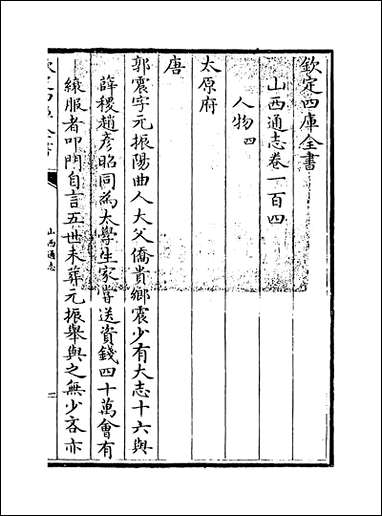 欽定四庫全書
山西通志卷一百四
人物四
太原府
唐
郭震字元振陽曲人大父僑貴鄉震少有大志十六與
薛稷趙彥昭同為太學生家嘗送資錢四十萬會有
縗服者叩門自言五世未葬元振舉與之無少吝亦
欽定四庫全書
山西通志
一